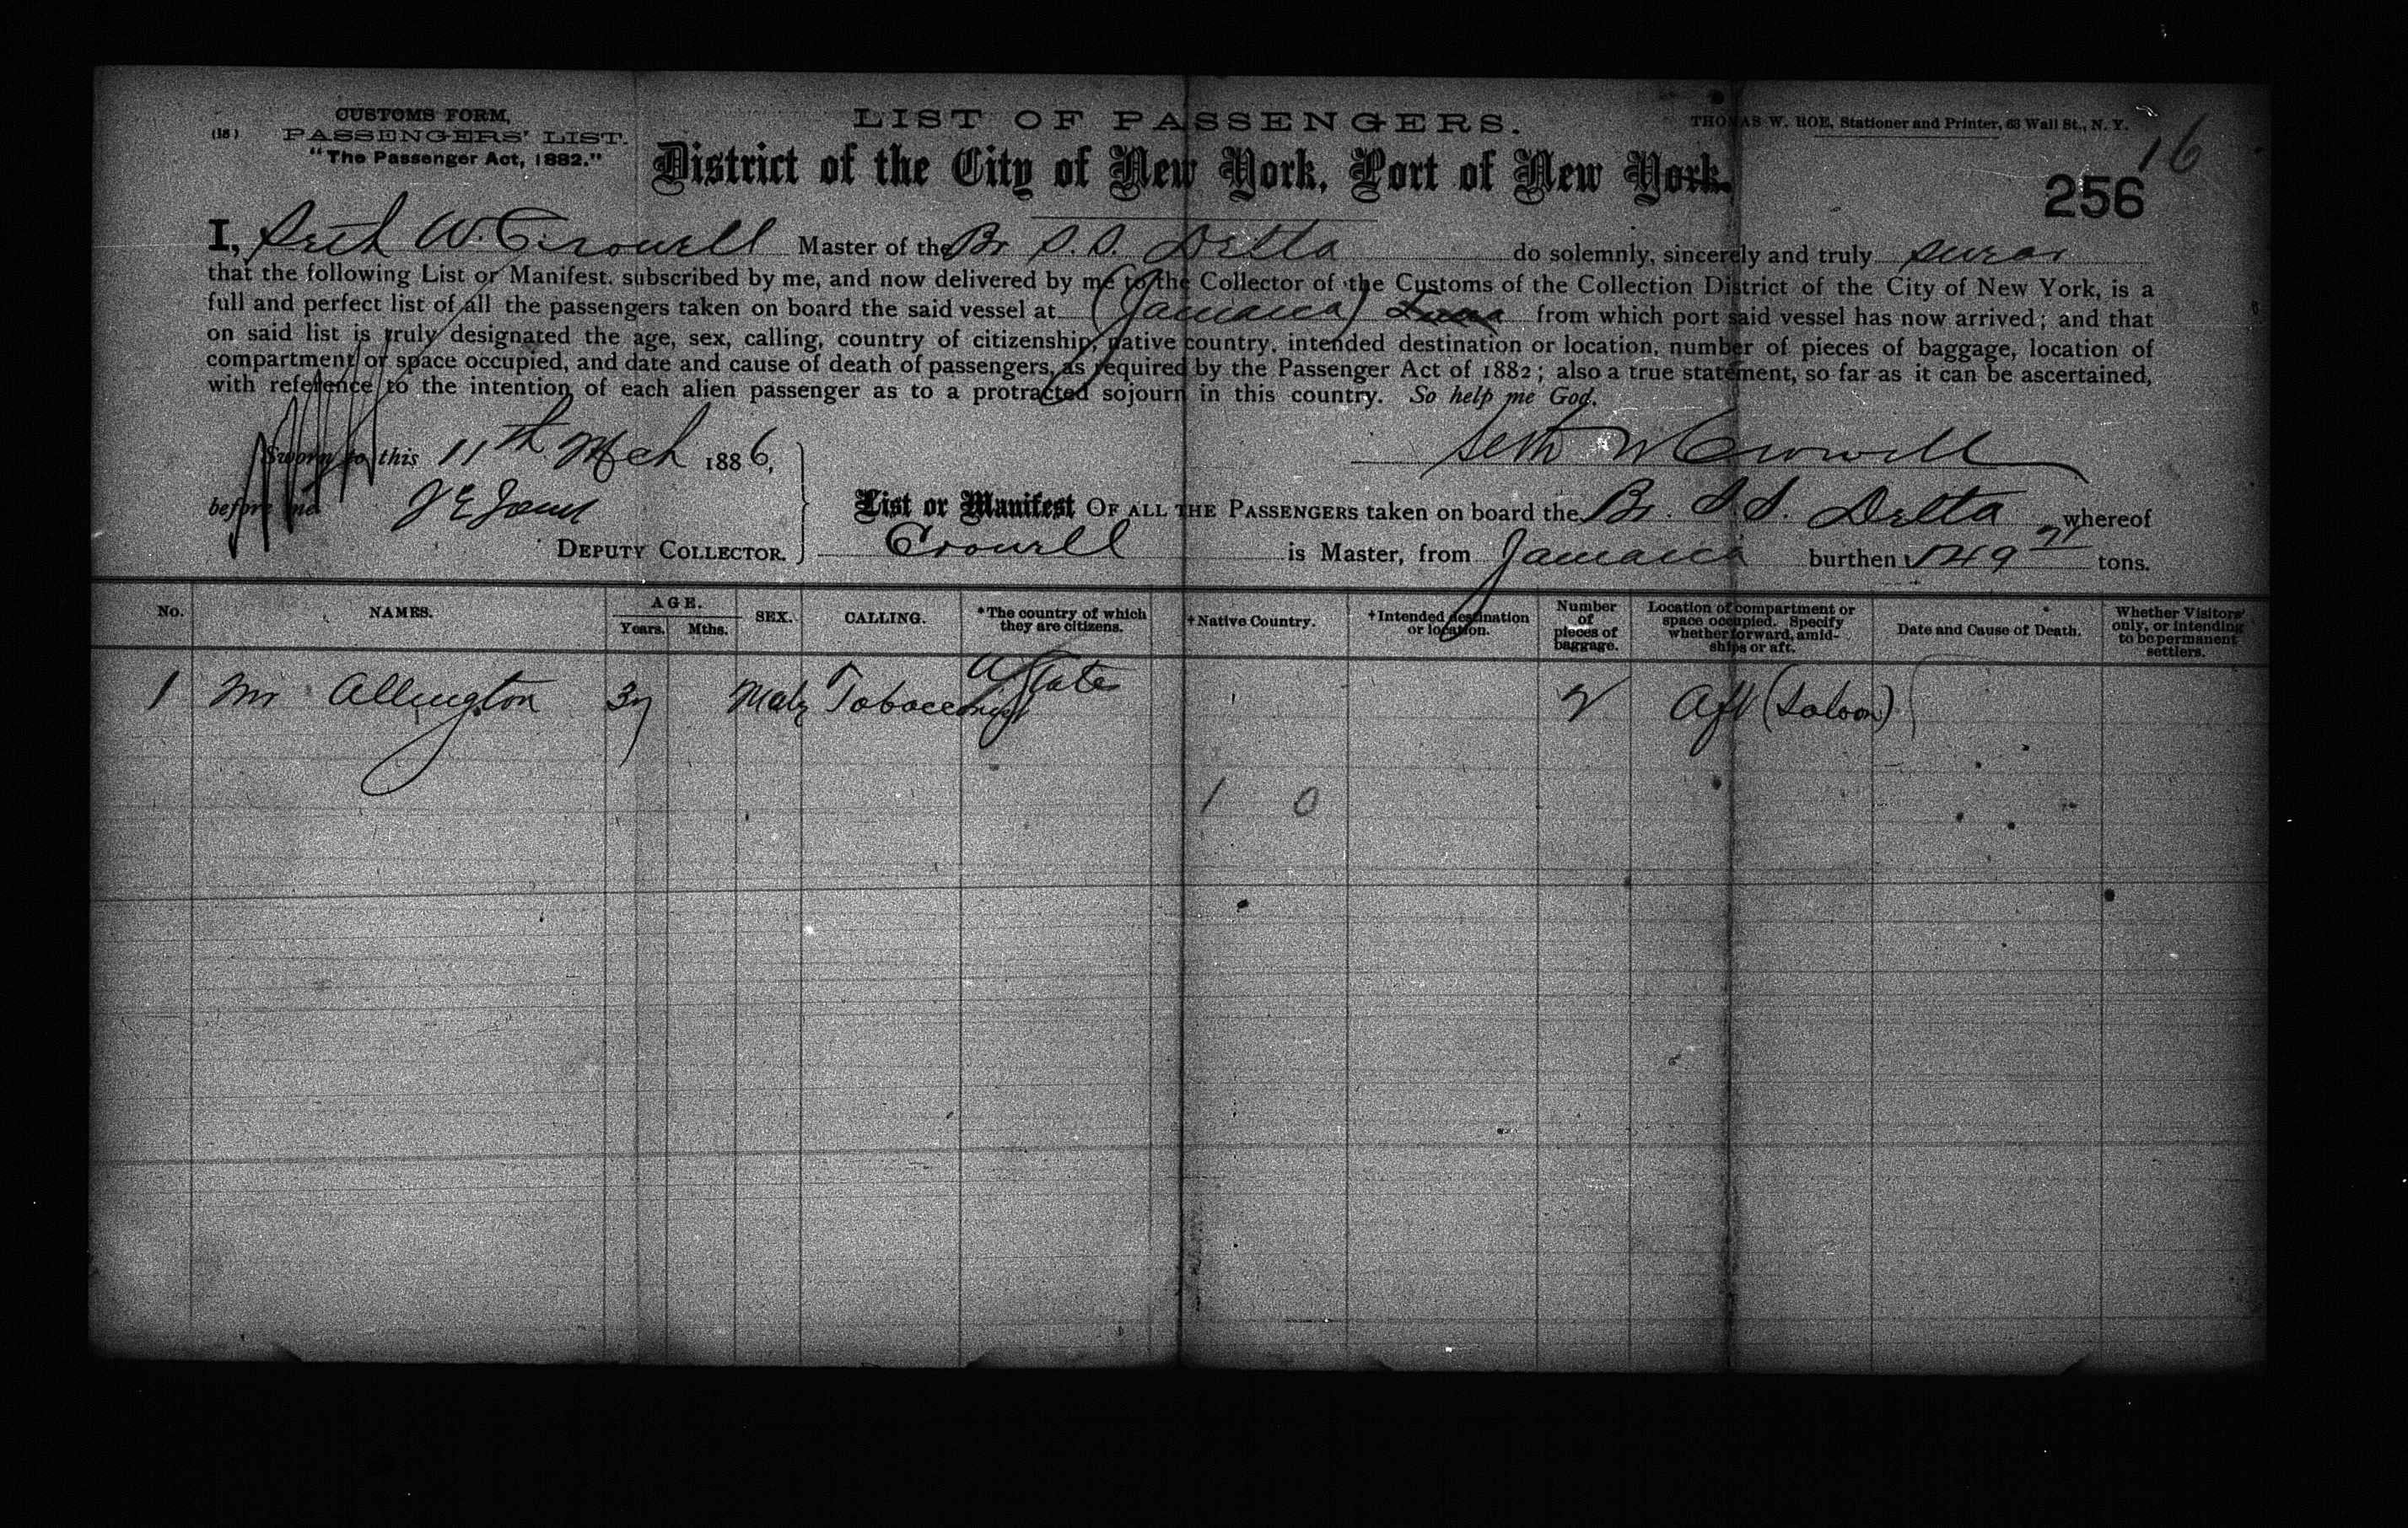 CUSTOMS FORM,
(18) PASSENGERS' LIST.
"The Passenger Act, 1882."
LIST OF PASSENGERS.
THOMAS W. ROE, Stationer and Printer, 63 Wall St., N. Y.
16
District of the City of New York, Port of New York.
256
I, Seth W. Crowell Master of the Br S.S. Delta do solemnly, sincerely and truly swear
that the following List or Manifest, subscribed by me, and now delivered by me to the Collector of the Customs of the Collection District of the City of New York, is a
full and perfect list of all the passengers taken on board the said vessel at (Jamaica) from which port said vessel has now arrived; and that
on said list is truly designated the age, sex, calling, country of citizenship, native country, intended destination or location, number of pieces of baggage, location of
compartment or space occupied, and date and cause of death of passengers, as required by the Passenger Act of 1882; also a true statement, so far as it can be ascertained,
with reference to the intention of each alien passenger as to a protracted sojourn in this country. So help me God.
Sworn to this 11th Mch 1886,
Seth W Crowell
before me
DEPUTY COLLECTOR.
List or Manifest OF ALL THE PASSENGERS taken on board the Br. S S. Delta whereof
Crowell is Master, from Jamaica burthen tons.
No. NAMES. AGE. Years. Mths. SEX. CALLING. *The country of which they are citizens. †Native Country. †Intended destination or location. Number of pieces of baggage. Location of compartment or space occupied. Specify whether forward, amidships or aft. Date and Cause of Death. Whether Visitors only, or intending to be permanent settlers.
1 Mr Allington Male Tobacconist U States 2 Aft (Saloon)
1 0